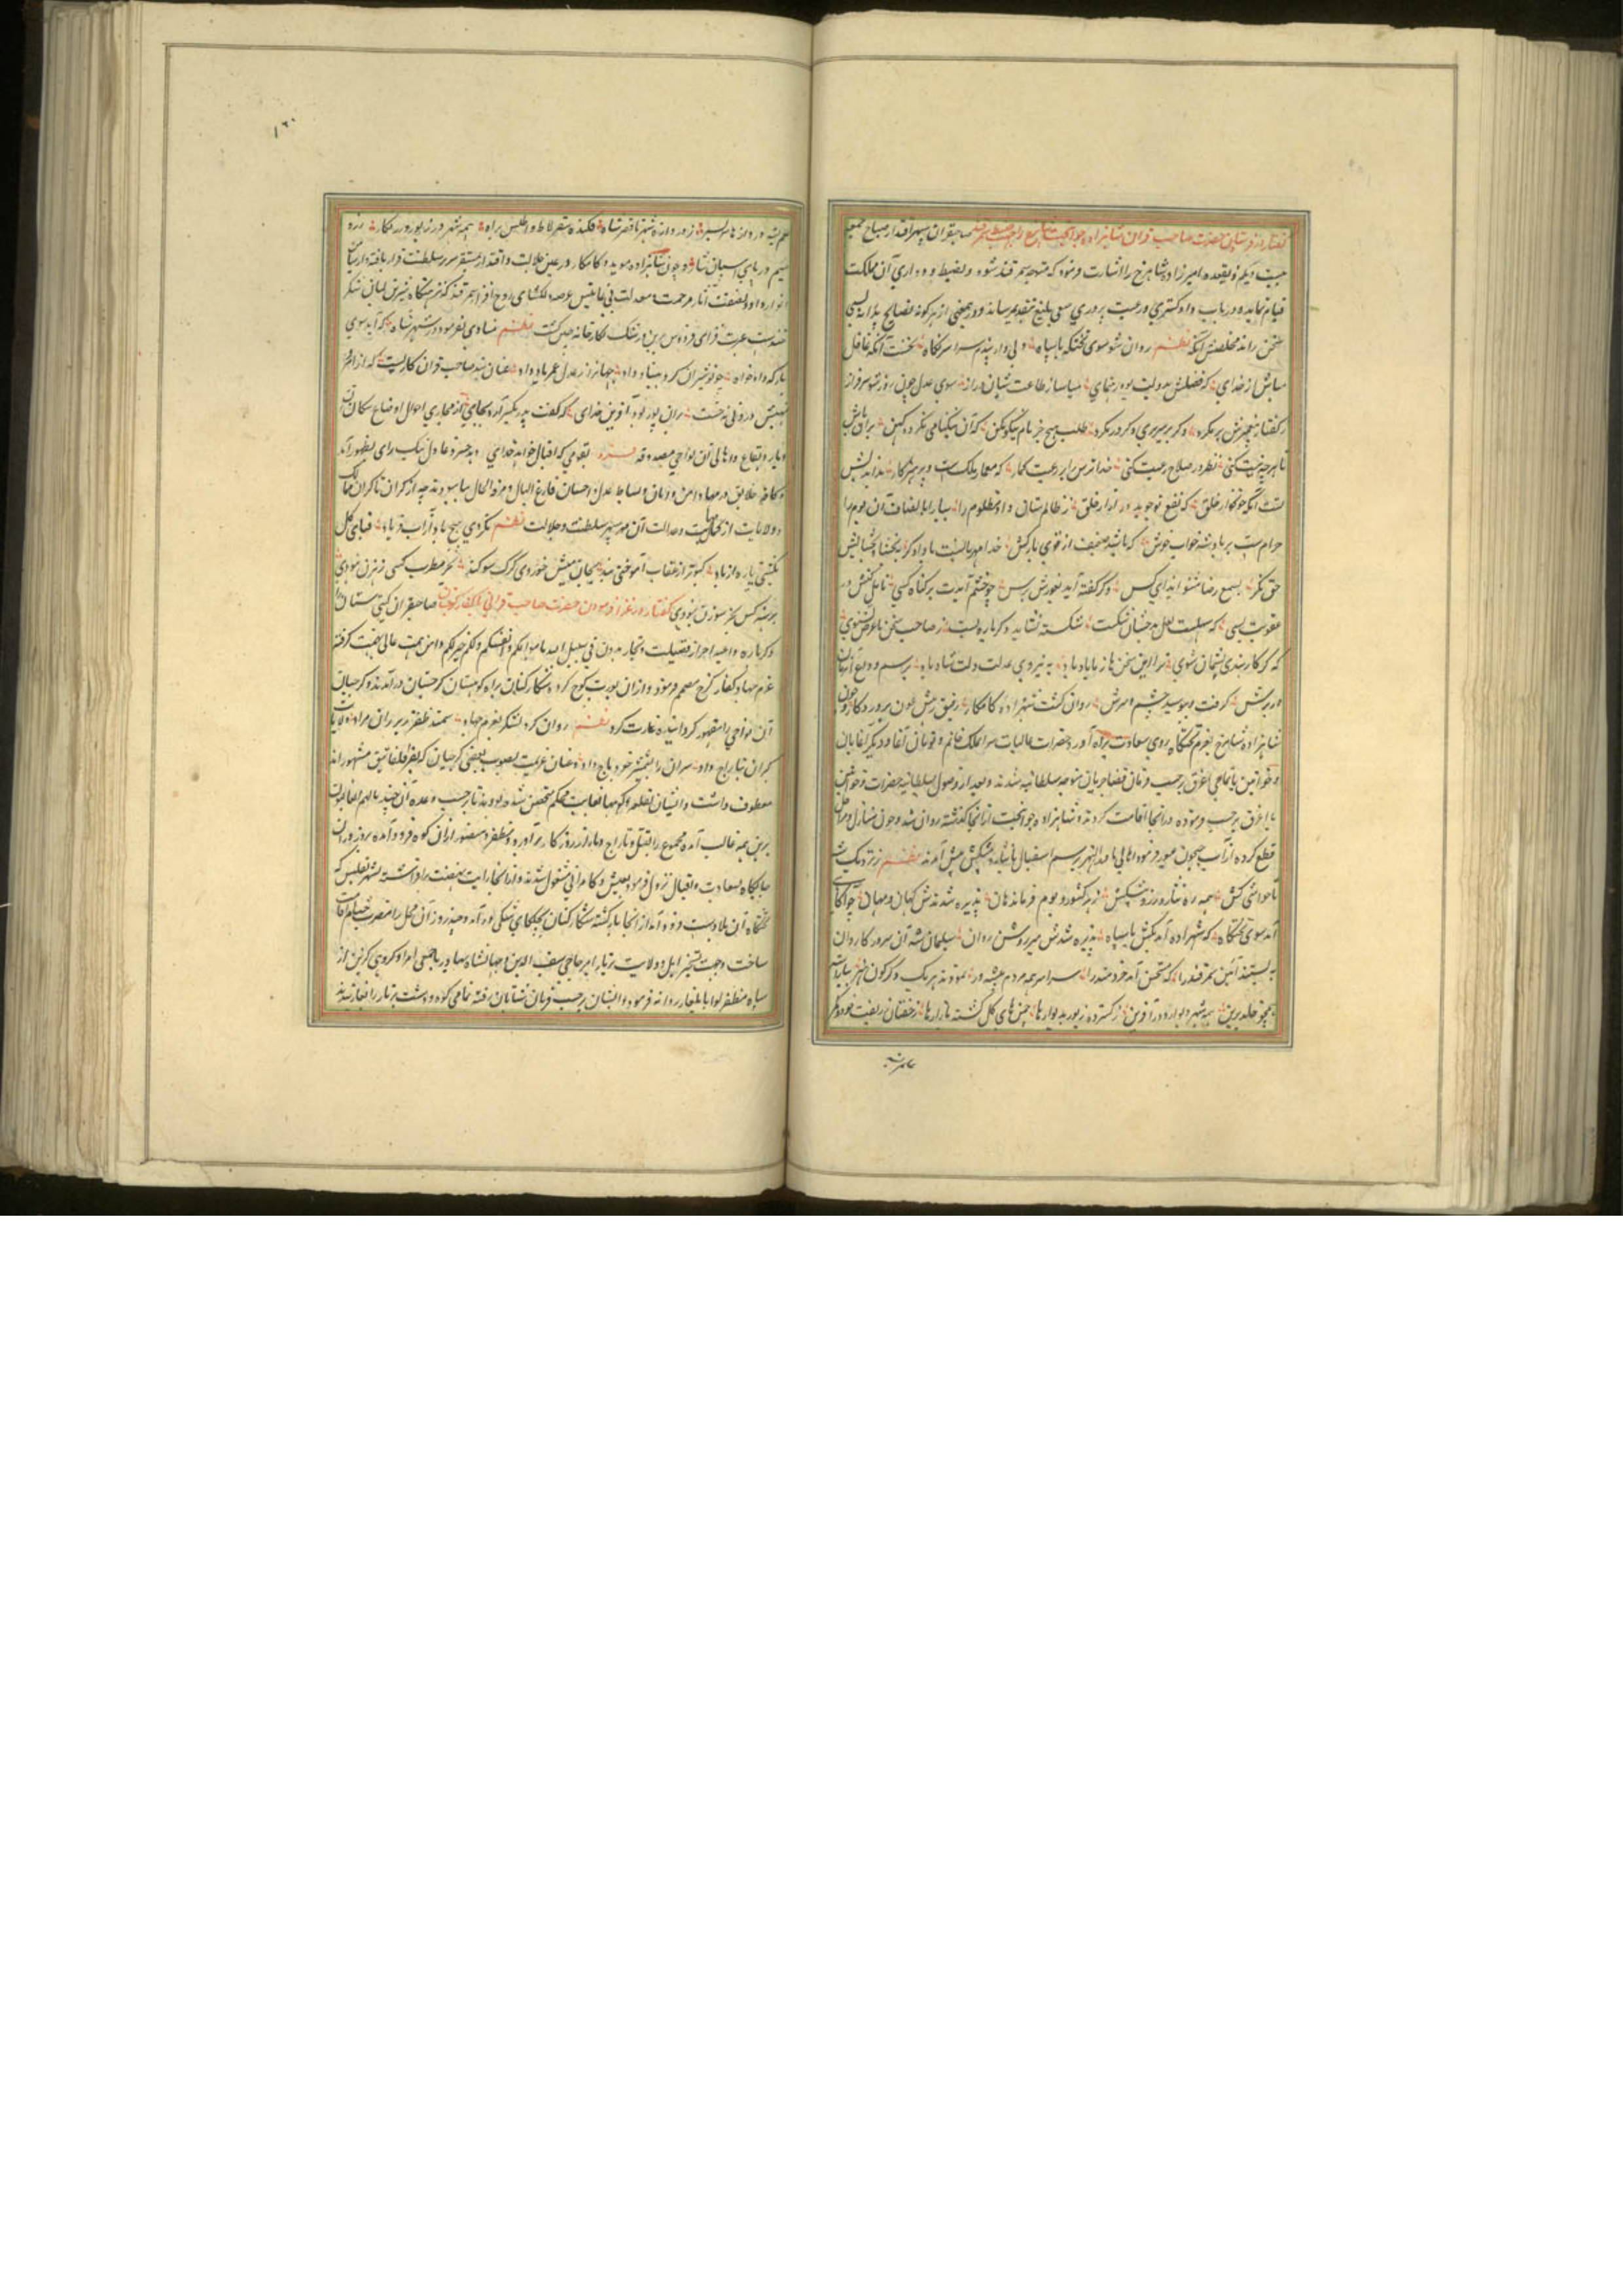 گفتار در فرستادن حضرت صاحب قران شاهزاده جوانبخت شاهرخ را بجانب سمرقند صاحبقران سپهر اقتدار صباح جمعه
بیست ویکم ذیقعده امیرزاده شاهرخ را اشارت فرمود که متوجه سمرقند شود و بضبط و دارایی آن مملکت
قیام نماید و در باب داد گستری و رعیت پروری سعی بلیغ بتقدیم رساند و در معنی از هر گونه نصایح پادشاهانه بسی
سخن راند مخلصش آنکه نظم روان شو سوی تختگه با سپاه ولی دار پندم سراسر نگاه نخست آنکه غافل
مباش از خدای که فضلش بدولت بود رهنمای بیاساز طاعت شبان دراز سوی عدل چون روز شو سرفراز
ز گفتار بدگهرش بر مگرد وگر بر سر بری وگر در مگرد طلب هیچ جز نام نیکو مکن که آن نیکنامی نگردد کهن بر آن باش
تا هر چه نیت کنی نظر در صلاح رعیت کنی خدا ترس را بر رعیت گمار که معمار ملکست و پرهیزگار بداندیش
تست آنکه خونخوار خلق که نفع تو جوید در آزار خلق ز ظالم ستان داد مظلوم را بیارا بانصاف آن بوم را
حرامست بر پادشه خواب خوش که باشد ضعیف از قوی بارکش خدا مهربانست با دادگر ببخشا و بخشایش
حق نگر بسمع رضا مشنو ایذای کس وگر گفته آید بغورش برس چو خشم آیدت بر گناه کسی تأمل کنش در
عقوبت بسی که سهلست لعل بدخشان شکست شکسته نشاید دگرباره بست ز صاحب سخن با غرض نشنوی
که گر کار بندی پشیمان شوی ترا این سخن ها ز بابا یاد باد به نیروی عدلت دلت شاد باد برسم وداع آن زمان
در برش گرفت و ببوسید چشم و سرش روان گشت شهزاده کامکار رفیق رهش عون پروردگار و چون
شاهزاده شاهرخ بعزم تختگاه روی سعادت براه آورد حضرات عالیات سرای ملک خانم و تومان آغا و دیگر آغایان
و خواتین با تمامی اغرق برحسب فرمان قضا جریان متوجه سلطانیه شدند و بعد از وصول سلطانیه حضرات و خواتین
با اغرق برحسب فرموده در آنجا اقامت کردند و شاهزاده جوانبخت از آنجا گذشته روان شد و چون منازل و مراحل
قطع کرده از آب جیحون عبور فرمود اهالی ماوراءالنهر برسم استقبال با نثار و پیشکش پیش آمدند نظم ز نزدیک کش
تا حواشی کش همه راه نثار و زر و پیشکش ز هر کشور و بوم فرماندهان پذیره شدندش کهان و مهان چو آگاهی
آمد سوی تختگاه که شهزاده آمد بکش با سپاه پذیره شدش میر روشن روان سلیمان شه آن سرور کاردان
ببستند آیین سمرقند را که مستحسن آمد خردمند را سراسر همه مردم پیشه ور نمودند هر یک دگرگون هنر بیاراسته
همچو خلد برین همه شهر دیوار و در آفرین ز گسترده زیور بدیوارها چمن های گل گشته بازارها درختان
علم بسته
۱۶۰
زده
در وازه شهر تا قصر شاه فکنده سقرلاط و اطلس براه همه شهر در زیور زرنگار زده
سیم در پای اسپان نثار و چون شاهزاده موید و کامکار در عین جلالت و اقتدار بمستقر سریر سلطنت قرار یافته از میامن
انوار داد و نصفت و آثار مرحمت و معدلت عرصه دلگشای روح افزا سمرقند که نزهتگاه شیرین لبان شکر
خندست غیرت فزای فردوس برین و رشک نگارخانه چین گشت نظم منادی بفرمود در شهر شاه که آید سوی
بارگه داد خواه چو نوشیروان کرد بنیاد داد جهانرا ز عدل عمر یاد داد عنان بند صاحب قران کار بست که از امر و
نهیش درونی نخست بر آن پور بود آفرین خدای که گفت پدر بگیرد آرد بجای از مجاری احوال اوضاع سکان آن
دیار و بقاع و اهالی آن نواحی مصدوقه فرد بقومی که اقبال خواهد خدای دهد خسرو عادل نیک رای بظهور آمد
و کافه خلایق در مهاد امن و امان و بساط عدل و احسان فارغ البال و مرفه الحال بیاسودند چه از کران تا کران ممالک
و ولایات از حمایت و عدالت آن مهر سپهر سلطنت و جلالت نظم نکردی هیچ باد آزاب زیاد قبای گل
نگشتی پاره از باد کبوتر از عقاب آموختی بند بجان میش خوردی گرگ سوگند بجز مطرب کسی ره زن نبودی
برهنه کس بجز سوزن نبودی گفتار در غزا فرمودن حضرت صاحب قرانی با کفار گرجستان صاحبقران گیتی ستان را
دگرباره داعیه احراز فضیلت و تجاهدون فی سبیل الله باموالکم و انفسکم ذلکم خیر لکم دامن همت عالی نهمت گرفته
عزم جهاد کفار گرج مصمم فرمود و از آن یورت کوچ کرده شکار کنان براه کوهستان گرجستان در آمدند و گرجیان
آن نواحی را مقهور گردانیده غارت کرد نظم روان کرد لشکر بعزم جهاد سمند ظفر زیر ران مراد ولایات
گبران بتاراج داد سران را بشمشیر خود تاج داد و عنان عزیمت بصوب بعضی گرجیان که بقرا قلقانلیق مشهوراند
معطوف داشت و ایشان بقلعه و کوهها بغایت محکم متحصن شده بودند تا بحسب وعده ان جندنا لهم الغالبون
برین همه غالب آمده مجموع را بقتل و تاراج دمار از روزگار بر آورد و مظفر و منصور از آن کوه فرود آمده بروز بروان
جایگاه بسعادت و اقبال نزول فرمود بعیش و کامرانی مشغول شدند و از آنجا رایت نهضت برافراشته بشهر تفلیس که
تختگاه آن بلادست فرود آمد از آنجا بازگشته شکار کنان بچکاکی شکی در آمد و چند روز آن محل را مضرب خیام اقامت
ساخت و جهت تسخیر ایل و ولایت برتاز امیر حاجی سیف الدین و جهانشاه بهادر با جمعی امرا و گروهی گزین از
سپاه مظفر لوا بایلغار روانه فرمود و ایشان برحسب فرمان شتابان رفته تمامی کوه و دشت برتاز را بغارتیدند